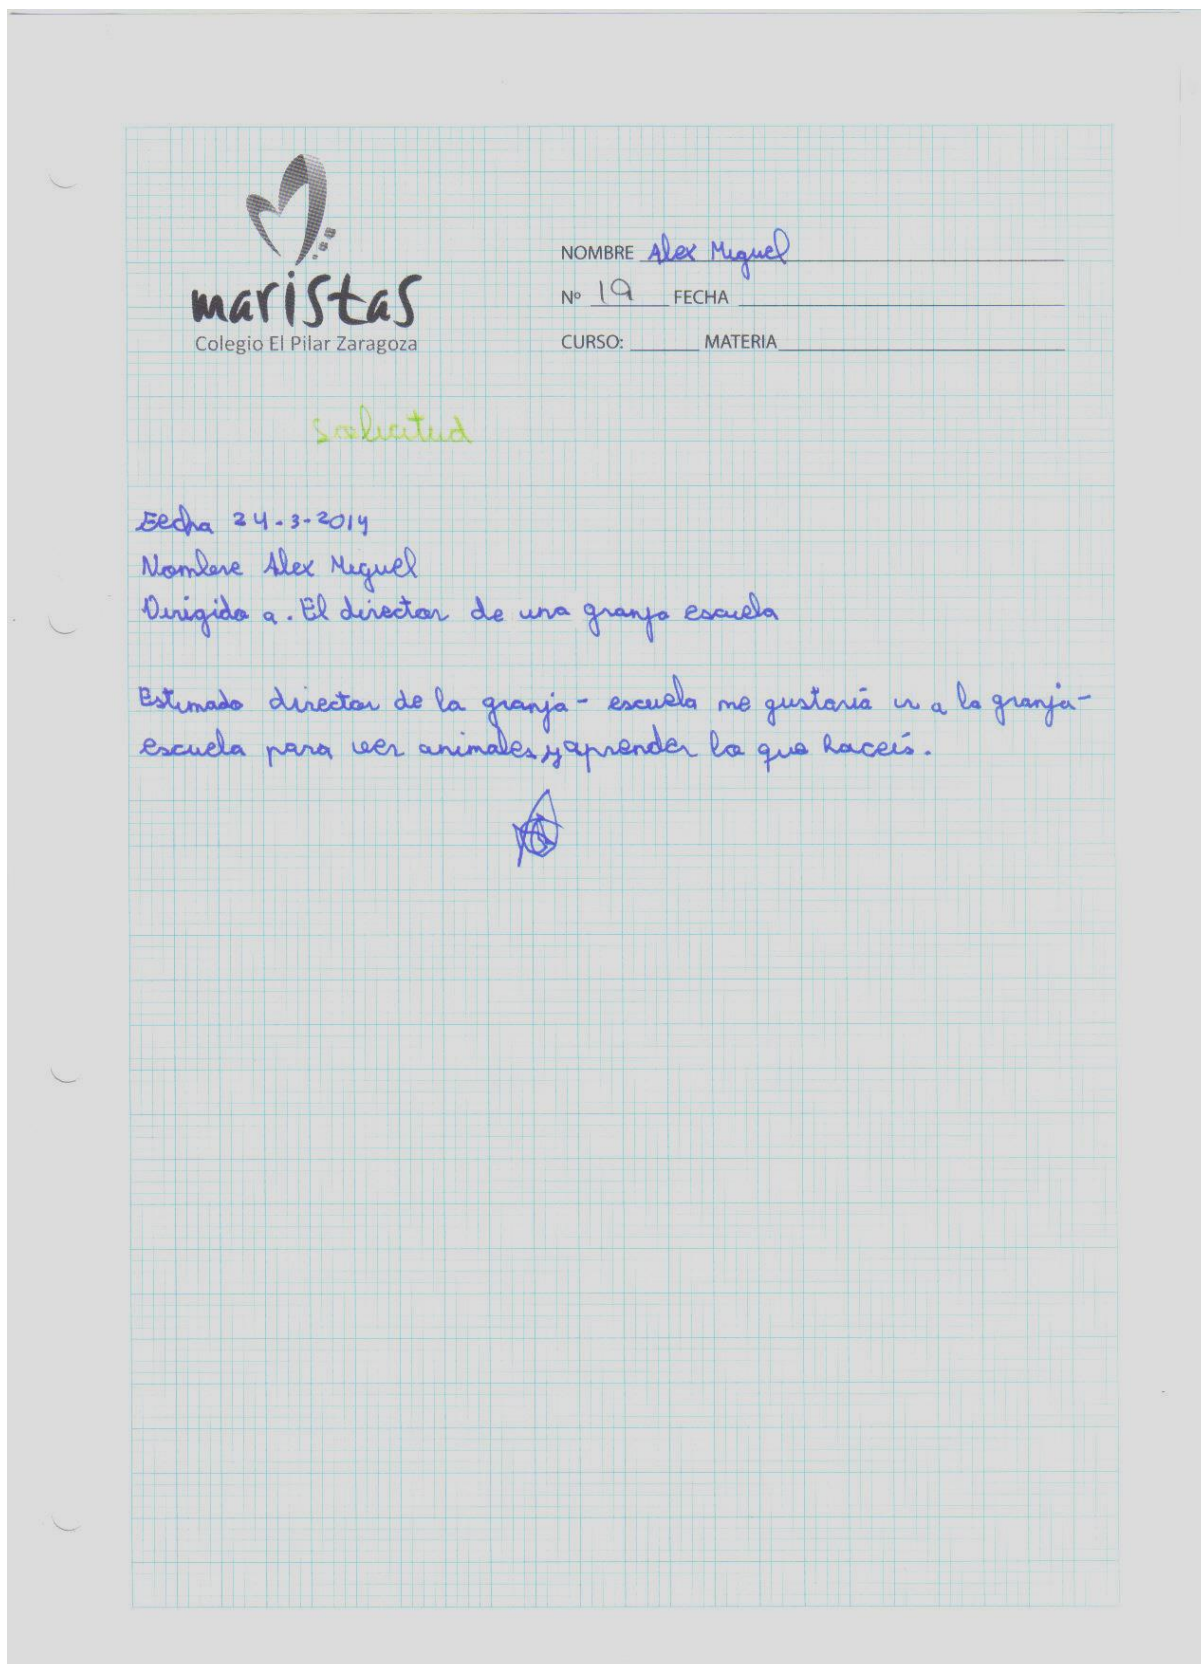 maristas
Colegio El Pilar Zaragoza
NOMBRE Alex Miguel
Nº 19 FECHA
CURSO: MATERIA
Solicitud
Fecha 24-3-2014
Nombre Alex Miguel
Dirigido a. El director de una granja escuela
Estimado director de la granja - escuela me gustaría ir a la granja-
escuela para ver animales y aprender lo que haceis.